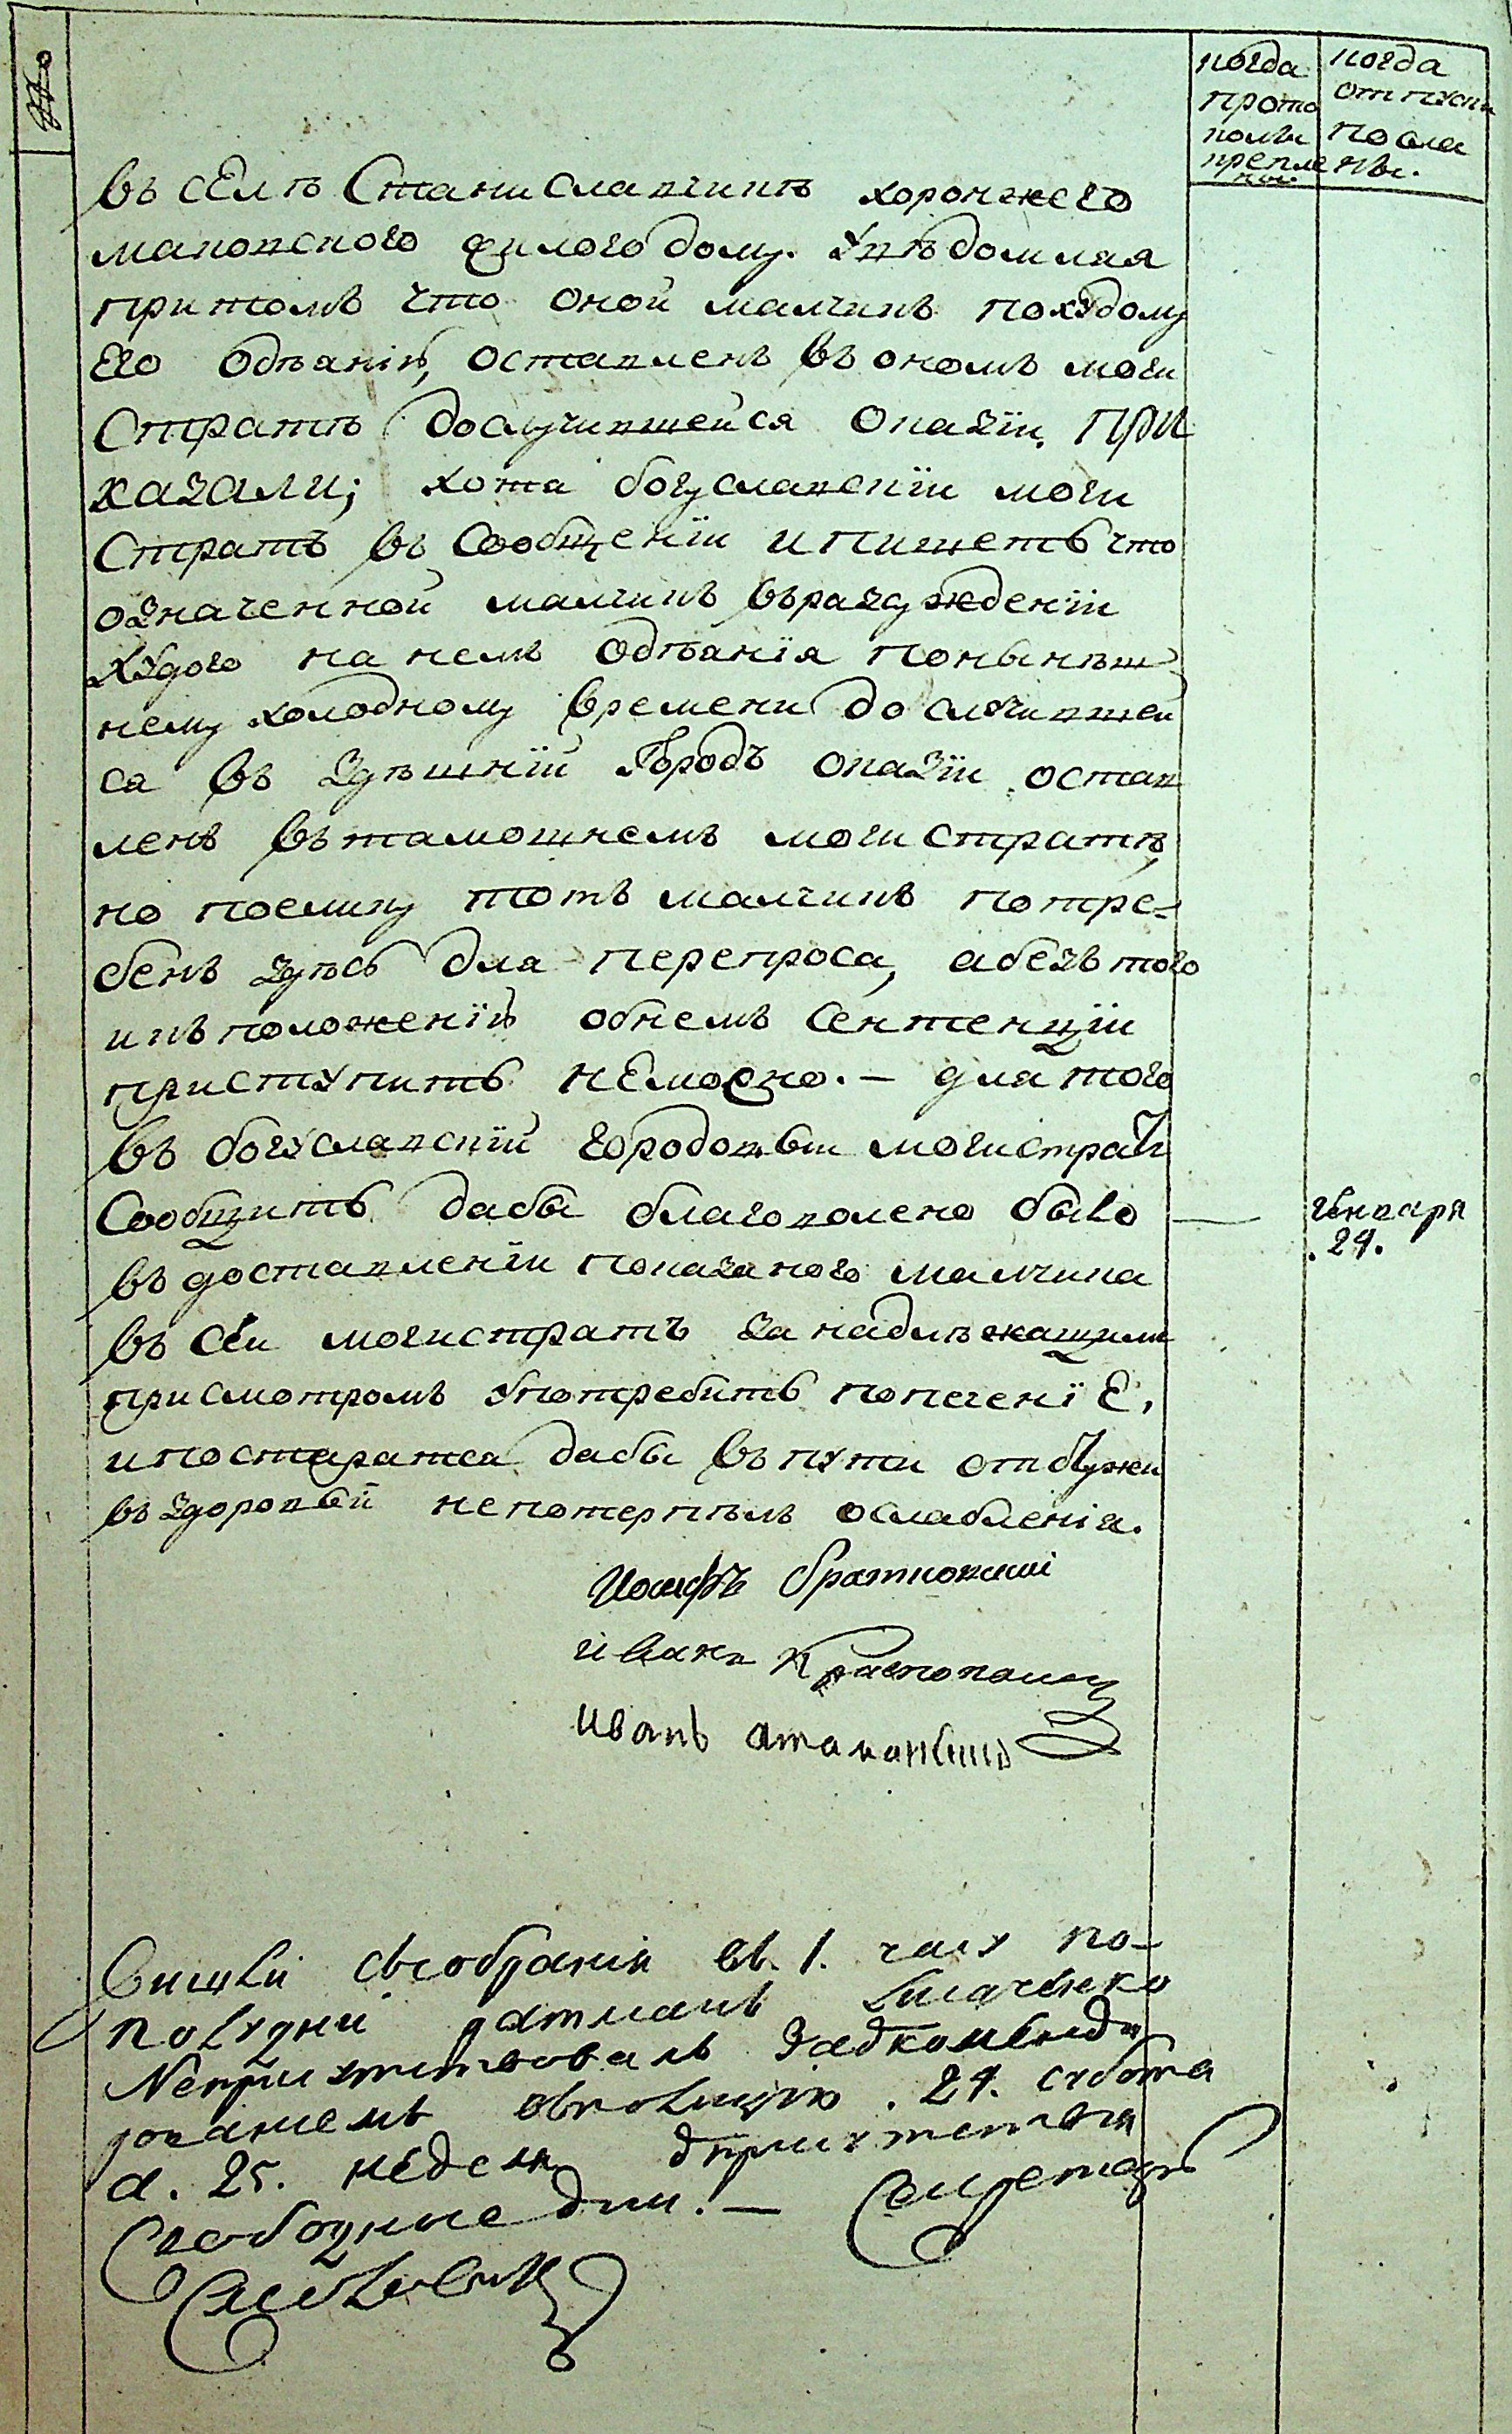 когда
прото
колы
крепле
ны.
когда
отпуски
посла
ны.
въ селѣ Станиславчикѣ хоронжего
маковского жилого дому. Увѣдомляя
притомъ что оной малчикъ похудому
Его одѣянію, оставленъ въ ономъ маги
Стратѣ дослучившейся оказіи. ПРИ
КАЗАЛИ; хотя богуславскіи маги
Стратъ въ Сообщеніи ипишетъ что
означенной малчикъ въразсуждении
худого на немъ одѣянія понынѣш
нему холодному времени дослучившей
ся въ здѣшній Городъ оказіи остав
ленъ въ тамошнемъ магистратѣ,
но поелику тотъ малчикъ потре-
бенъ здѣсь для перепроса, абезъ того
икъ положенію обнемъ Сентенціи
приступить неможно. — для того
въ богуславскій городовый магистратъ
Сообщить дабы благоволено было
въ доставленіи показаного малчика
въ Сей магистратъ за надлѣжащимъ
присмотромъ употребить попеченіе,
ипостаратся дабы въпути отстужи
въ здоровьи непотерпѣлъ ослабленія.
генваря
24.
Иосифъ братковскій
иванъ Краснокалец
иванъ атаманскій
Вишли съсобранія въ 1. часу по-
полудни ратманъ
Неприсутствовалъ за
въполицію. 24. субота
а. 25. неделя отприсутствія
Свободние дни. — Секретарь